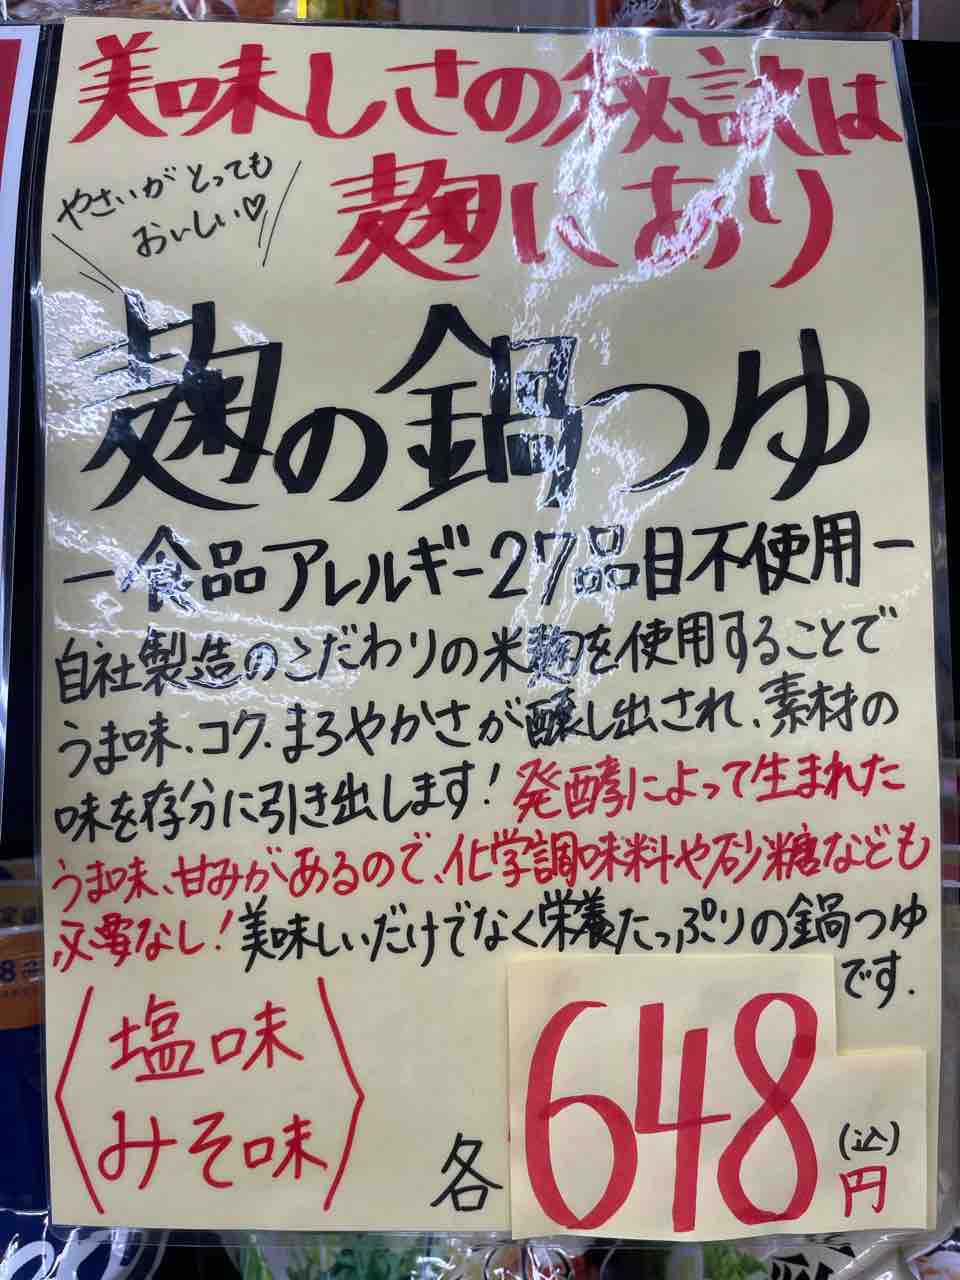 美味しさの秘訣は
麹にあり
やさいがとっても
おいしい♡
麹の鍋つゆ
－食品アレルギー27品目不使用－
自社製造のこだわりの米麹を使用することで
うま味、コク、まろやかさが醸し出され、素材の
味を存分に引き出します！発酵によって生まれた
うま味、甘みがあるので、化学調味料や砂糖なども
必要なし！美味しいだけでなく栄養たっぷりの鍋つゆ
です.
塩味
みそ味
各
648
(込)
円